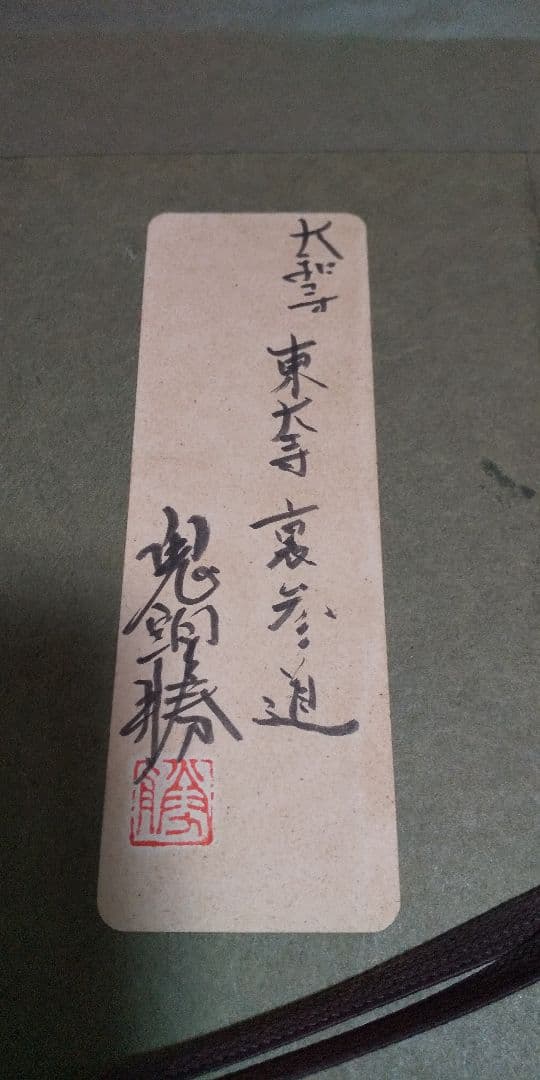 大和寺 東大寺 裏参道
鬼頭勝
勝